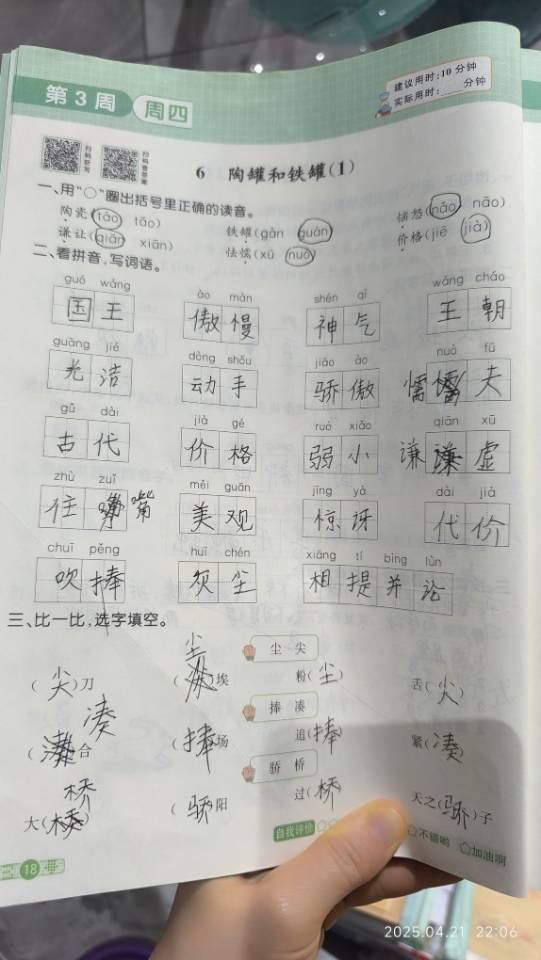 第3周 周四
建议用时:10分钟
实际用时:____分钟
扫码听写 扫码看答案
6 陶罐和铁罐(1)
一、用“○”圈出括号里正确的读音。
陶瓷(táo tāo) 铁罐(gàn guàn) 恼怒(nǎo nāo)
谦让(qiān xiān) 怯懦(xū nuò) 价格(jiē jià)
二、看拼音,写词语。
guó wáng ào màn shén qì wáng cháo
国王 傲慢 神气 王朝
guāng jié dòng shǒu jiāo ào nuò fū
光洁 动手 骄傲 懦夫
gǔ dài jià gé ruò xiǎo qiān xū
古代 价格 弱小 谦虚
zhù zuǐ měi guān jīng yà dài jià
住嘴 美观 惊讶 代价
chuī pěng huī chén xiāng tí bìng lùn
吹捧 灰尘 相提并论
三、比一比,选字填空。
尘 尖
(尖)刀 (尘)埃 粉(尘) 舌(尖)
捧 凑
(凑)合 (捧)场 追(捧) 紧(凑)
骄 桥
大(桥) (骄)阳 过(桥) 天之(骄)子
自我评价 不错哟 加油啊
18
2025.04.21 22:06